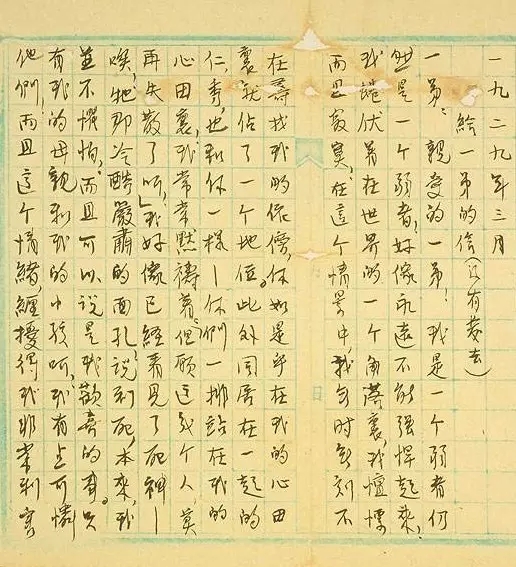 一九二九年三月
給一弟的信(只有菱去)
一弟:親愛的一弟!我是一个弱者何
然是一个弱者,好像永遠不能强悍起來,
我蜷伏著在世界的一个角落裏,我恒慄
而且寂寞,在這个情景中,我無时無刻不
在尋找我的保傍,你如是乎在我的心田
裏就佔了一个地位。此外同居在一起的
仁,秀,也和你一樣—你们一排站在我的
心田裏,我常常默禱著。但願這幾个人莫
再失散了呵,我好像已經看見了死神—
唉,牠那冷酷嚴肅的面孔,說到死,本來,我
並不懼怕,而且可以說是我歡喜的事。只
有我的母親和我的小孩呵,我有点可憐
他们,而且這个情緒,纏擾得我非常利害